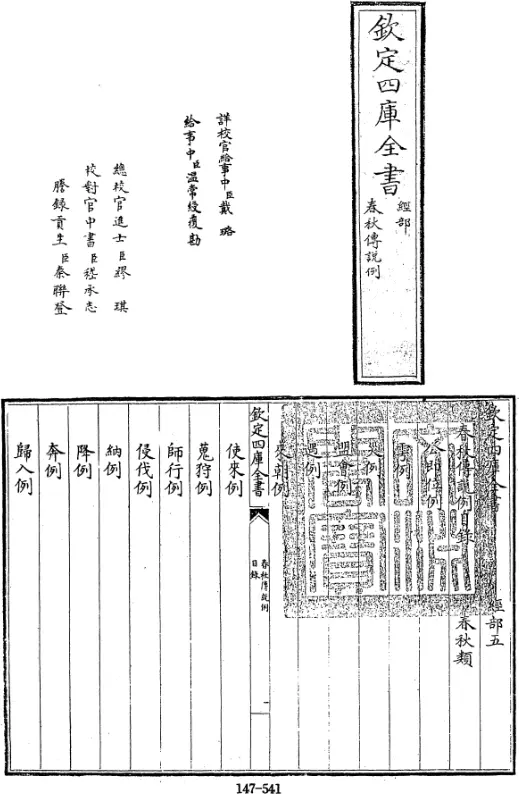 欽定四庫全書
經部
春秋傳説例
詳校官給事中臣戴璐
給事中臣温常綬覆勘
總校官進士臣繆琪
校對官中書臣嵇承志
謄録貢生臣秦聯登
欽定四庫全書
經部五
春秋傳説例目録
春秋類
公即位例
盟會例
遇例
來朝例
欽定四庫全書
春秋傳説例
目録
一
使來例
蒐狩例
師行例
侵伐例
納例
降例
奔例
歸入例
147-541